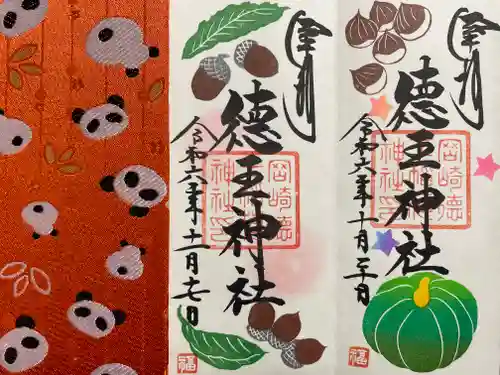 奉拝
徳王神社
令和六年十月二十日
岡崎徳
神社印
福
奉拝
徳王神社
令和六年十一月十七日
岡崎徳
神社印
福